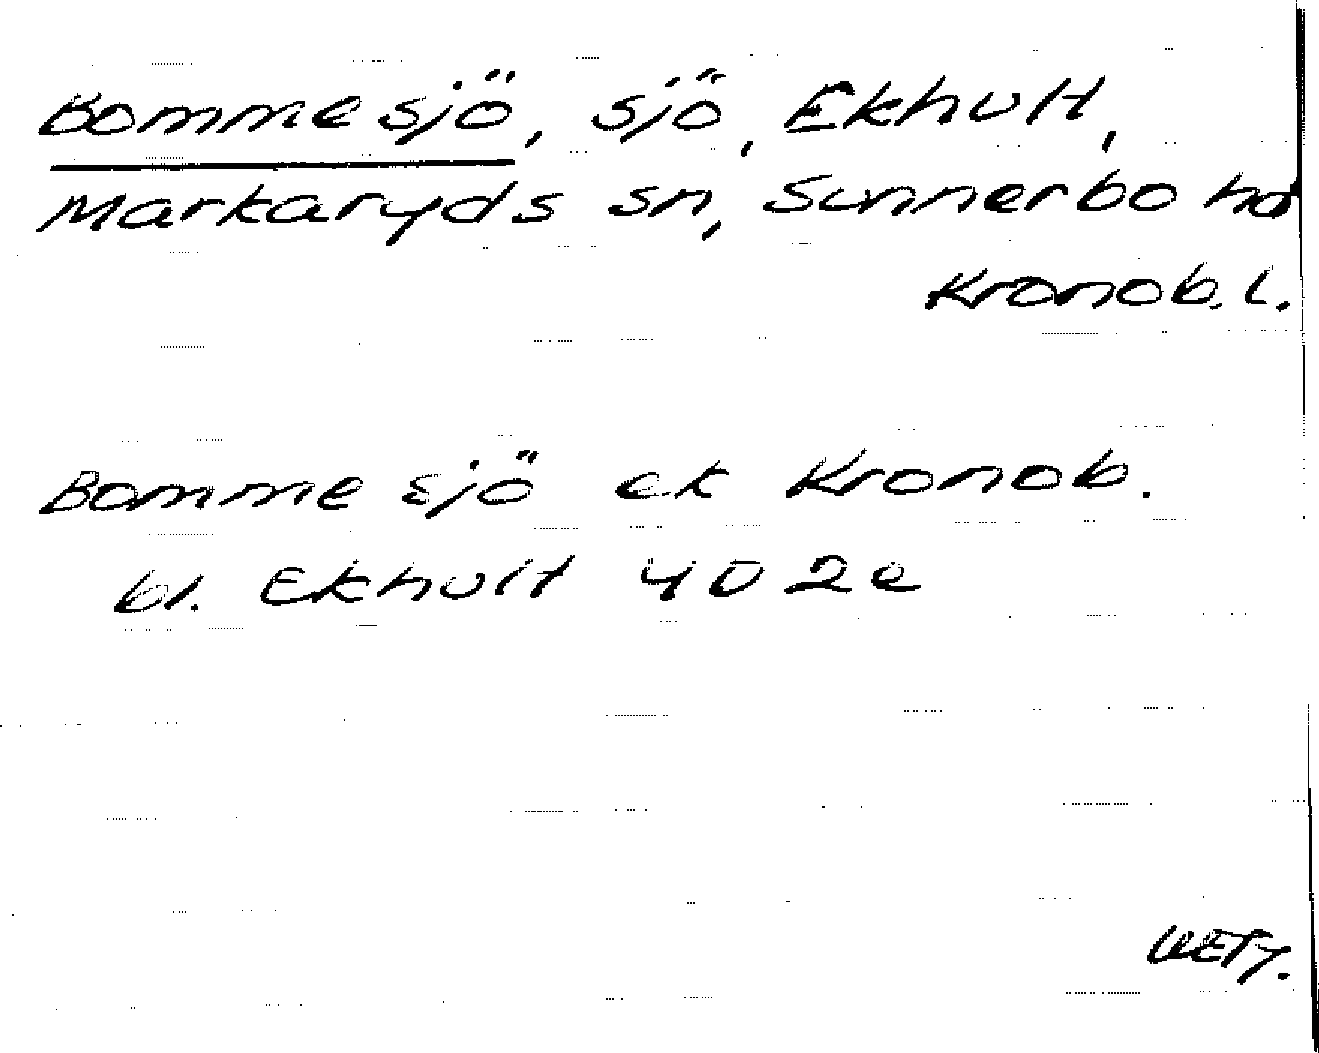 Bommesjö, sjö, Ekhult,
Markaryds sn, Sunnerbo hd
Kronob. l.
Bommesjö ek Kronob.
bl. Ekhult 4D 2e